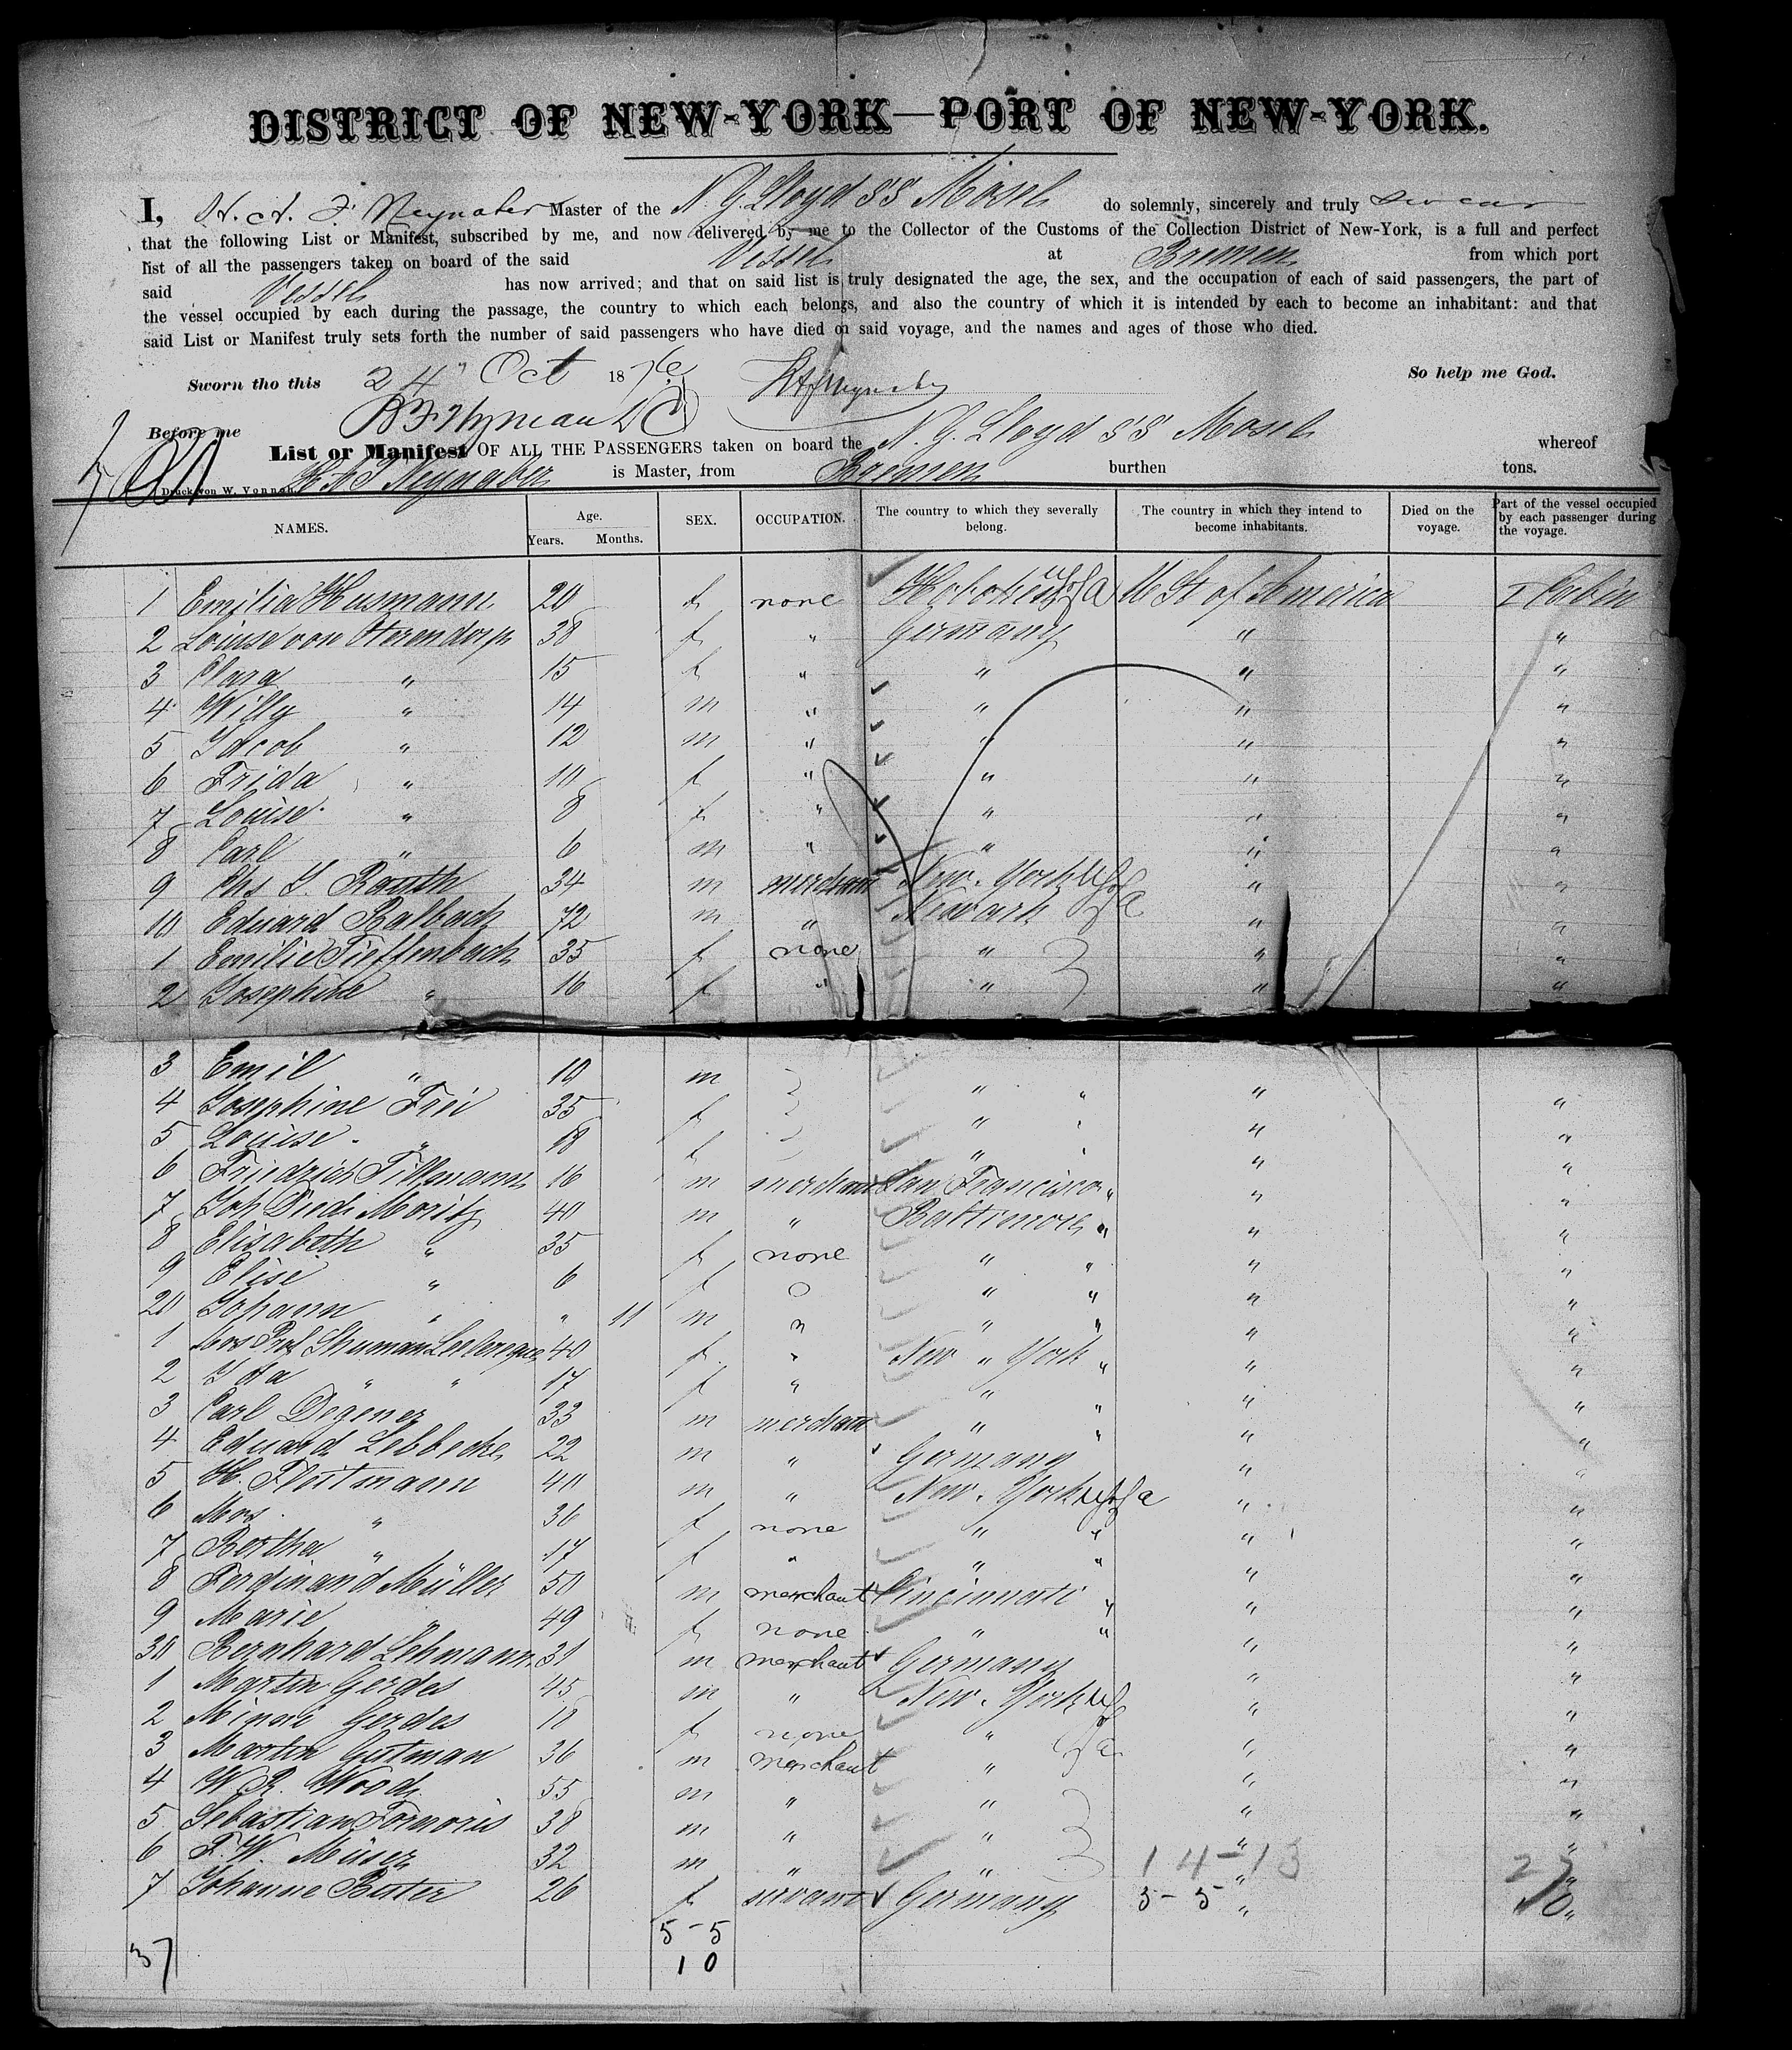 DISTRICT OF NEW-YORK—PORT OF NEW-YORK.
I, H. A. F. Neynaber Master of the N. G. Lloyd SS Mosel do solemnly, sincerely and truly swear
that the following List or Manifest, subscribed by me, and now delivered by me to the Collector of the Customs of the Collection District of New-York, is a full and perfect
list of all the passengers taken on board of the said Vessel at Bremen from which port
said Vessel has now arrived; and that on said list is truly designated the age, the sex, and the occupation of each of said passengers, the part of
the vessel occupied by each during the passage, the country to which each belongs, and also the country of which it is intended by each to become an inhabitant: and that
said List or Manifest truly sets forth the number of said passengers who have died on said voyage, and the names and ages of those who died.
Sworn tho this 24" Oct 1876 So help me God.
Before me
List or Manifest OF ALL THE PASSENGERS taken on board the N. G. Lloyd SS Mosel whereof
H A F Neynaber is Master, from Bremen burthen tons.
Druck von W. Vonnah
NAMES. Age. Years. Months. SEX. OCCUPATION. The country to which they severally belong. The country in which they intend to become inhabitants. Died on the voyage. Part of the vessel occupied by each passenger during the voyage.
1 Emilia Husmann 20 f none Hoboken U S of A U St of America I Cabin
2 Louise von 38 f " Germany " "
3 Clara " 15 f " " " "
4 Willy " 14 m " " " "
5 Jacob " 12 m " " " "
6 Frida " 10 f " " " "
7 Louise " 8 f " " " "
8 Carl " 6 m " " " "
9 Chs J. Rauth 34 m merchant New York U S of a " "
10 Eduard Balbach 72 m " Newark " "
1 Emilie Tieffenbach 35 f none " " "
2 Josephine " 16 f " " " "
3 Emil " 10 m " " " "
4 Josephine Frei 35 f " " " "
5 Louise " 18 f " " "
6 Friedrich Tillmann 16 m merchant San Francisco " " "
7 Joh Died. Moritz 40 m " Baltimore " " "
8 Elisabeth " 35 f none " " " "
9 Elise " 6 f " " " "
20 Johann " " 11 m " " " " "
1 Mrs Prof 40 f " New York " " "
2 Ida " " 17 f " " " " "
3 Carl Degener 33 m merchant " " " "
4 Eduard Lebbecke 22 m " Germany " "
5 H. Flottmann 40 m " New York U S of a " "
6 Mrs. " 36 f none " " " "
7 Bertha " 17 f " " " " "
8 Ferdinand Müller 50 m merchant Cincinnati " " "
9 Marie " 49 f none " " " "
30 Bernhard Lehmann 31 m merchant Germany " "
1 Martin Gerdes 45 m " New York U S " "
2 Minnie Gerdes 18 f none " of a " "
3 Martin Gutman 36 m merchant " " "
4 W. R. Wood 55 m " " " "
5 Sebastian 38 m " " " "
6 F. W. Müser 32 m " " " "
7 Johanne Buter 26 f servant Germany " "
14-13
5-5
27
10
5-5
10
37